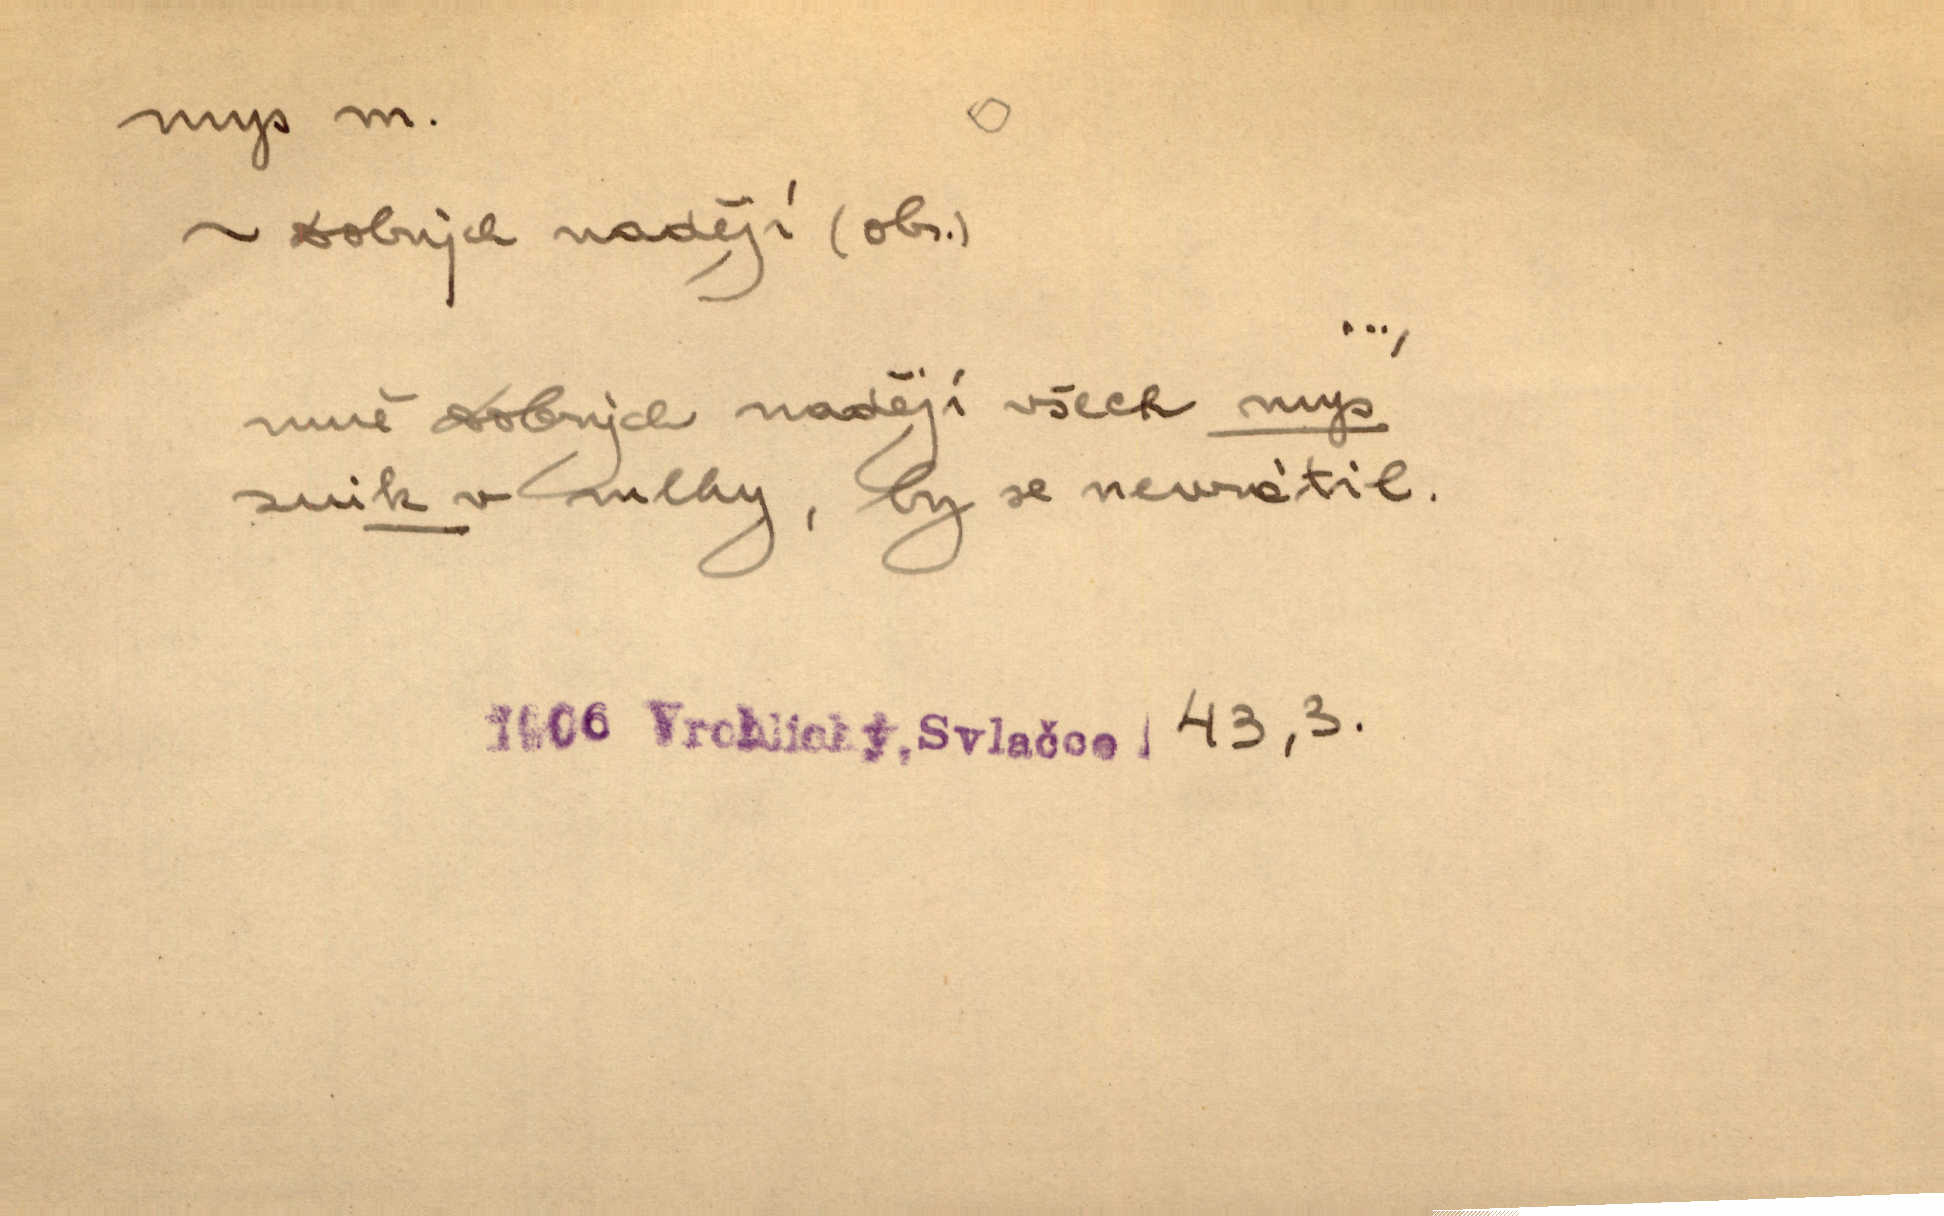 mys m.
~ dobrých nadějí (obr.)
...,
mně dobrých nadějí všech mys
znik v mlhy, by se nevrátil.
1906 Vrchlický, Svlačce / 43,3.